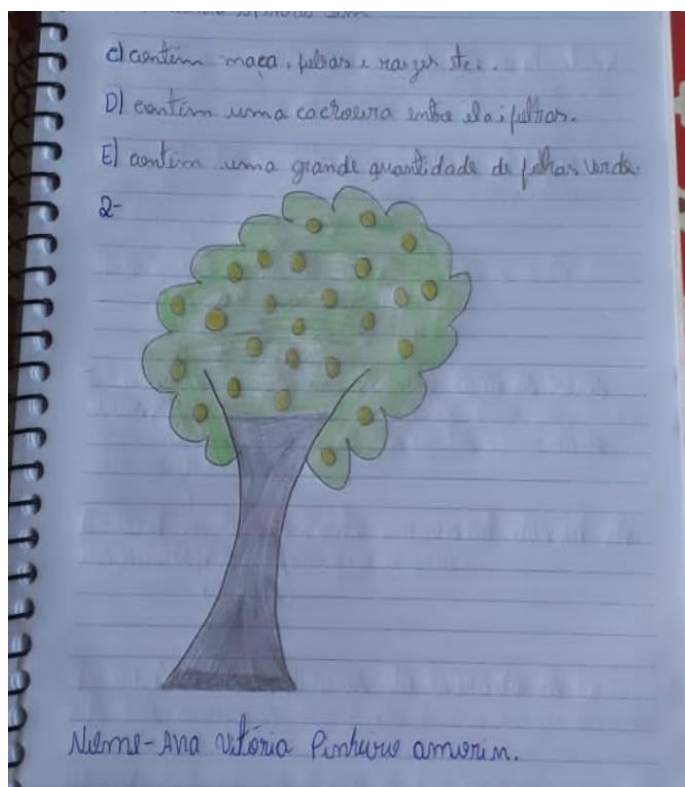 C) contém maçã, folhas e raizes etc.
D) contém uma cachoeira entre ela i folhas.
E) contém uma grande quantidade de folhas verde.
2-
Nome-Ana Vitória Pinheiro amorim.